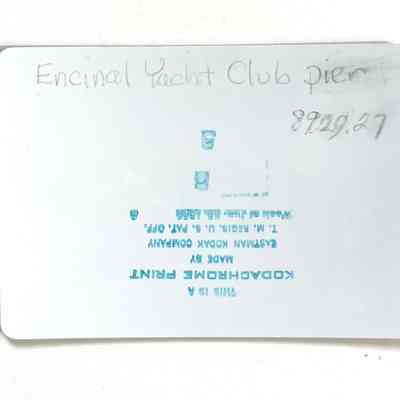 Encinal Yacht Club pier
8929.27
THIS IS A
KODACHROME PRINT
MADE BY
EASTMAN KODAK COMPANY
T. M. REGIS. U. S. PAT. OFF.
Week of